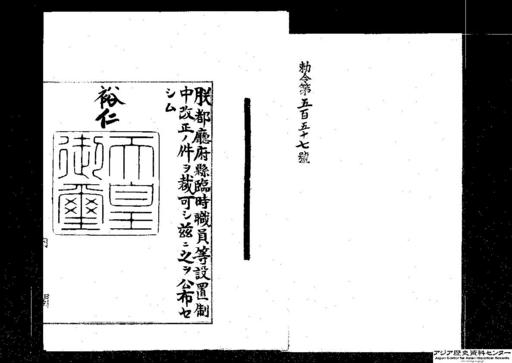 勅令第五百五十七號
朕都廳府縣臨時職員等設置制
中改正ノ件ヲ裁可シ茲ニ之ヲ公布セ
シム
裕仁
天皇
御璽
内閣
アジア歴史資料センター
Japan Center for Asian Historical Records